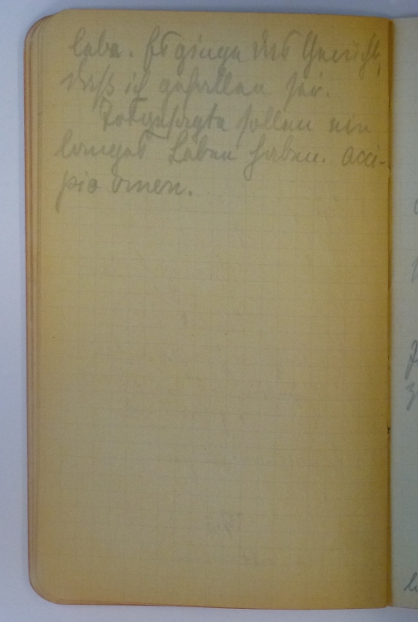 lebe. Es ginge das Gerücht,
daß ich gefallen sei.
Totgesagte sollen ein
langes Leben haben. Acci-
pio omen.